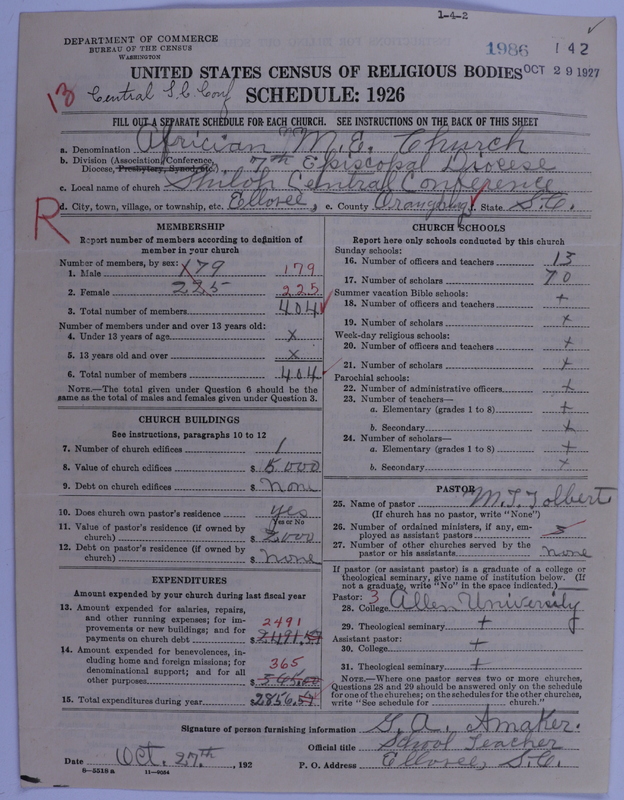 1-4-2
DEPARTMENT OF COMMERCE
BUREAU OF THE CENSUS
WASHINGTON
1986 142
OCT 29 1927
UNITED STATES CENSUS OF RELIGIOUS BODIES
13 Central S.C. Conf
SCHEDULE: 1926
FILL OUT A SEPARATE SCHEDULE FOR EACH CHURCH. SEE INSTRUCTIONS ON THE BACK OF THIS SHEET
a. Denomination African M.E. Church
b. Division (Association, Conference, Diocese, Presbytery, Synod, etc.) 7th Episcopal Diocese
c. Local name of church Shiloh Central Conference
R
d. City, town, village, or township, etc. Elloree, e. County Orangburg f. State S.C.
MEMBERSHIP
Report number of members according to definition of
member in your church
Number of members, by sex:
1. Male 179 179
2. Female 225 225
3. Total number of members 404
Number of members under and over 13 years old:
4. Under 13 years of age x
5. 13 years old and over x
6. Total number of members 404
NOTE.—The total given under Question 6 should be the
same as the total of males and females given under Question 3.
CHURCH BUILDINGS
See instructions, paragraphs 10 to 12
7. Number of church edifices 1
8. Value of church edifices $ 5000
9. Debt on church edifices $ None
10. Does church own pastor's residence yes
Yes or No
11. Value of pastor's residence (if owned by
church) $ 2000
12. Debt on pastor's residence (if owned by
church) $ None
EXPENDITURES
Amount expended by your church during last fiscal year
13. Amount expended for salaries, repairs,
and other running expenses; for im-
provements or new buildings; and for
payments on church debt $ 2491
14. Amount expended for benevolences, in-
cluding home and foreign missions; for
denominational support; and for all
other purposes $ 365
15. Total expenditures during year $ 2856.57
CHURCH SCHOOLS
Report here only schools conducted by this church
Sunday schools:
16. Number of officers and teachers 13
17. Number of scholars 70
Summer vacation Bible schools:
18. Number of officers and teachers +
19. Number of scholars x
Week-day religious schools:
20. Number of officers and teachers +
21. Number of scholars +
Parochial schools:
22. Number of administrative officers +
23. Number of teachers—
a. Elementary (grades 1 to 8) +
b. Secondary x
24. Number of scholars—
a. Elementary (grades 1 to 8) +
b. Secondary x
PASTOR
25. Name of pastor M. T. Tolbert
(If church has no pastor, write "None")
26. Number of ordained ministers, if any, em-
ployed as assistant pastors
27. Number of other churches served by the
pastor or his assistants none
If pastor (or assistant pastor) is a graduate of a college or
theological seminary, give name of institution below. (If
not a graduate, write "No" in the space indicated.)
Pastor: 3
28. College Allen University
29. Theological seminary +
Assistant pastor:
30. College +
31. Theological seminary +
NOTE.—Where one pastor serves two or more churches,
Questions 28 and 29 should be answered only on the schedule
for one of the churches; on the schedules for the other churches,
write "See schedule for church."
Signature of person furnishing information G. A. Amaker.
Official title School Teacher
Date Oct. 27th, 192
P. O. Address Elloree, S.C.
8—5518 a 11—9054